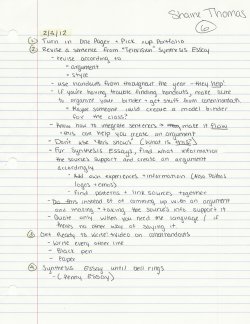 Shane Thomas
6
2/6/12
① Turn in One Pager + Pick up Portfolio
② Revise a sentence from "Television" Synthesis Essay
- revise according to
- argument
- style
- use handouts from throughout the year - they help!
- If you're having trouble finding handouts, make sure
to organize your binder + get stuff from amenhandouts
- Maybe someone could create a model binder
for the class?
- Know how to integrate sentences → make it flow
- this can help you create an argument
- Don't use "this shows" (What is this?)
- For Synthesis Essays, find what information
the sources support and create an argument
accordingly
- Add own experiences + information (Also Pathos
logos + ethos)
- Find patterns + link sources together
- Do this instead of coming up with an argument
and making + taking the sources into support it
- Quote only when you need the language / if
there's no other way of saying it.
③ Get Ready to Write: Video on amenhandouts
- Write every other line
- Black pen
- Paper
④ Synthesis Essay until bell rings
- (Penny Essay)